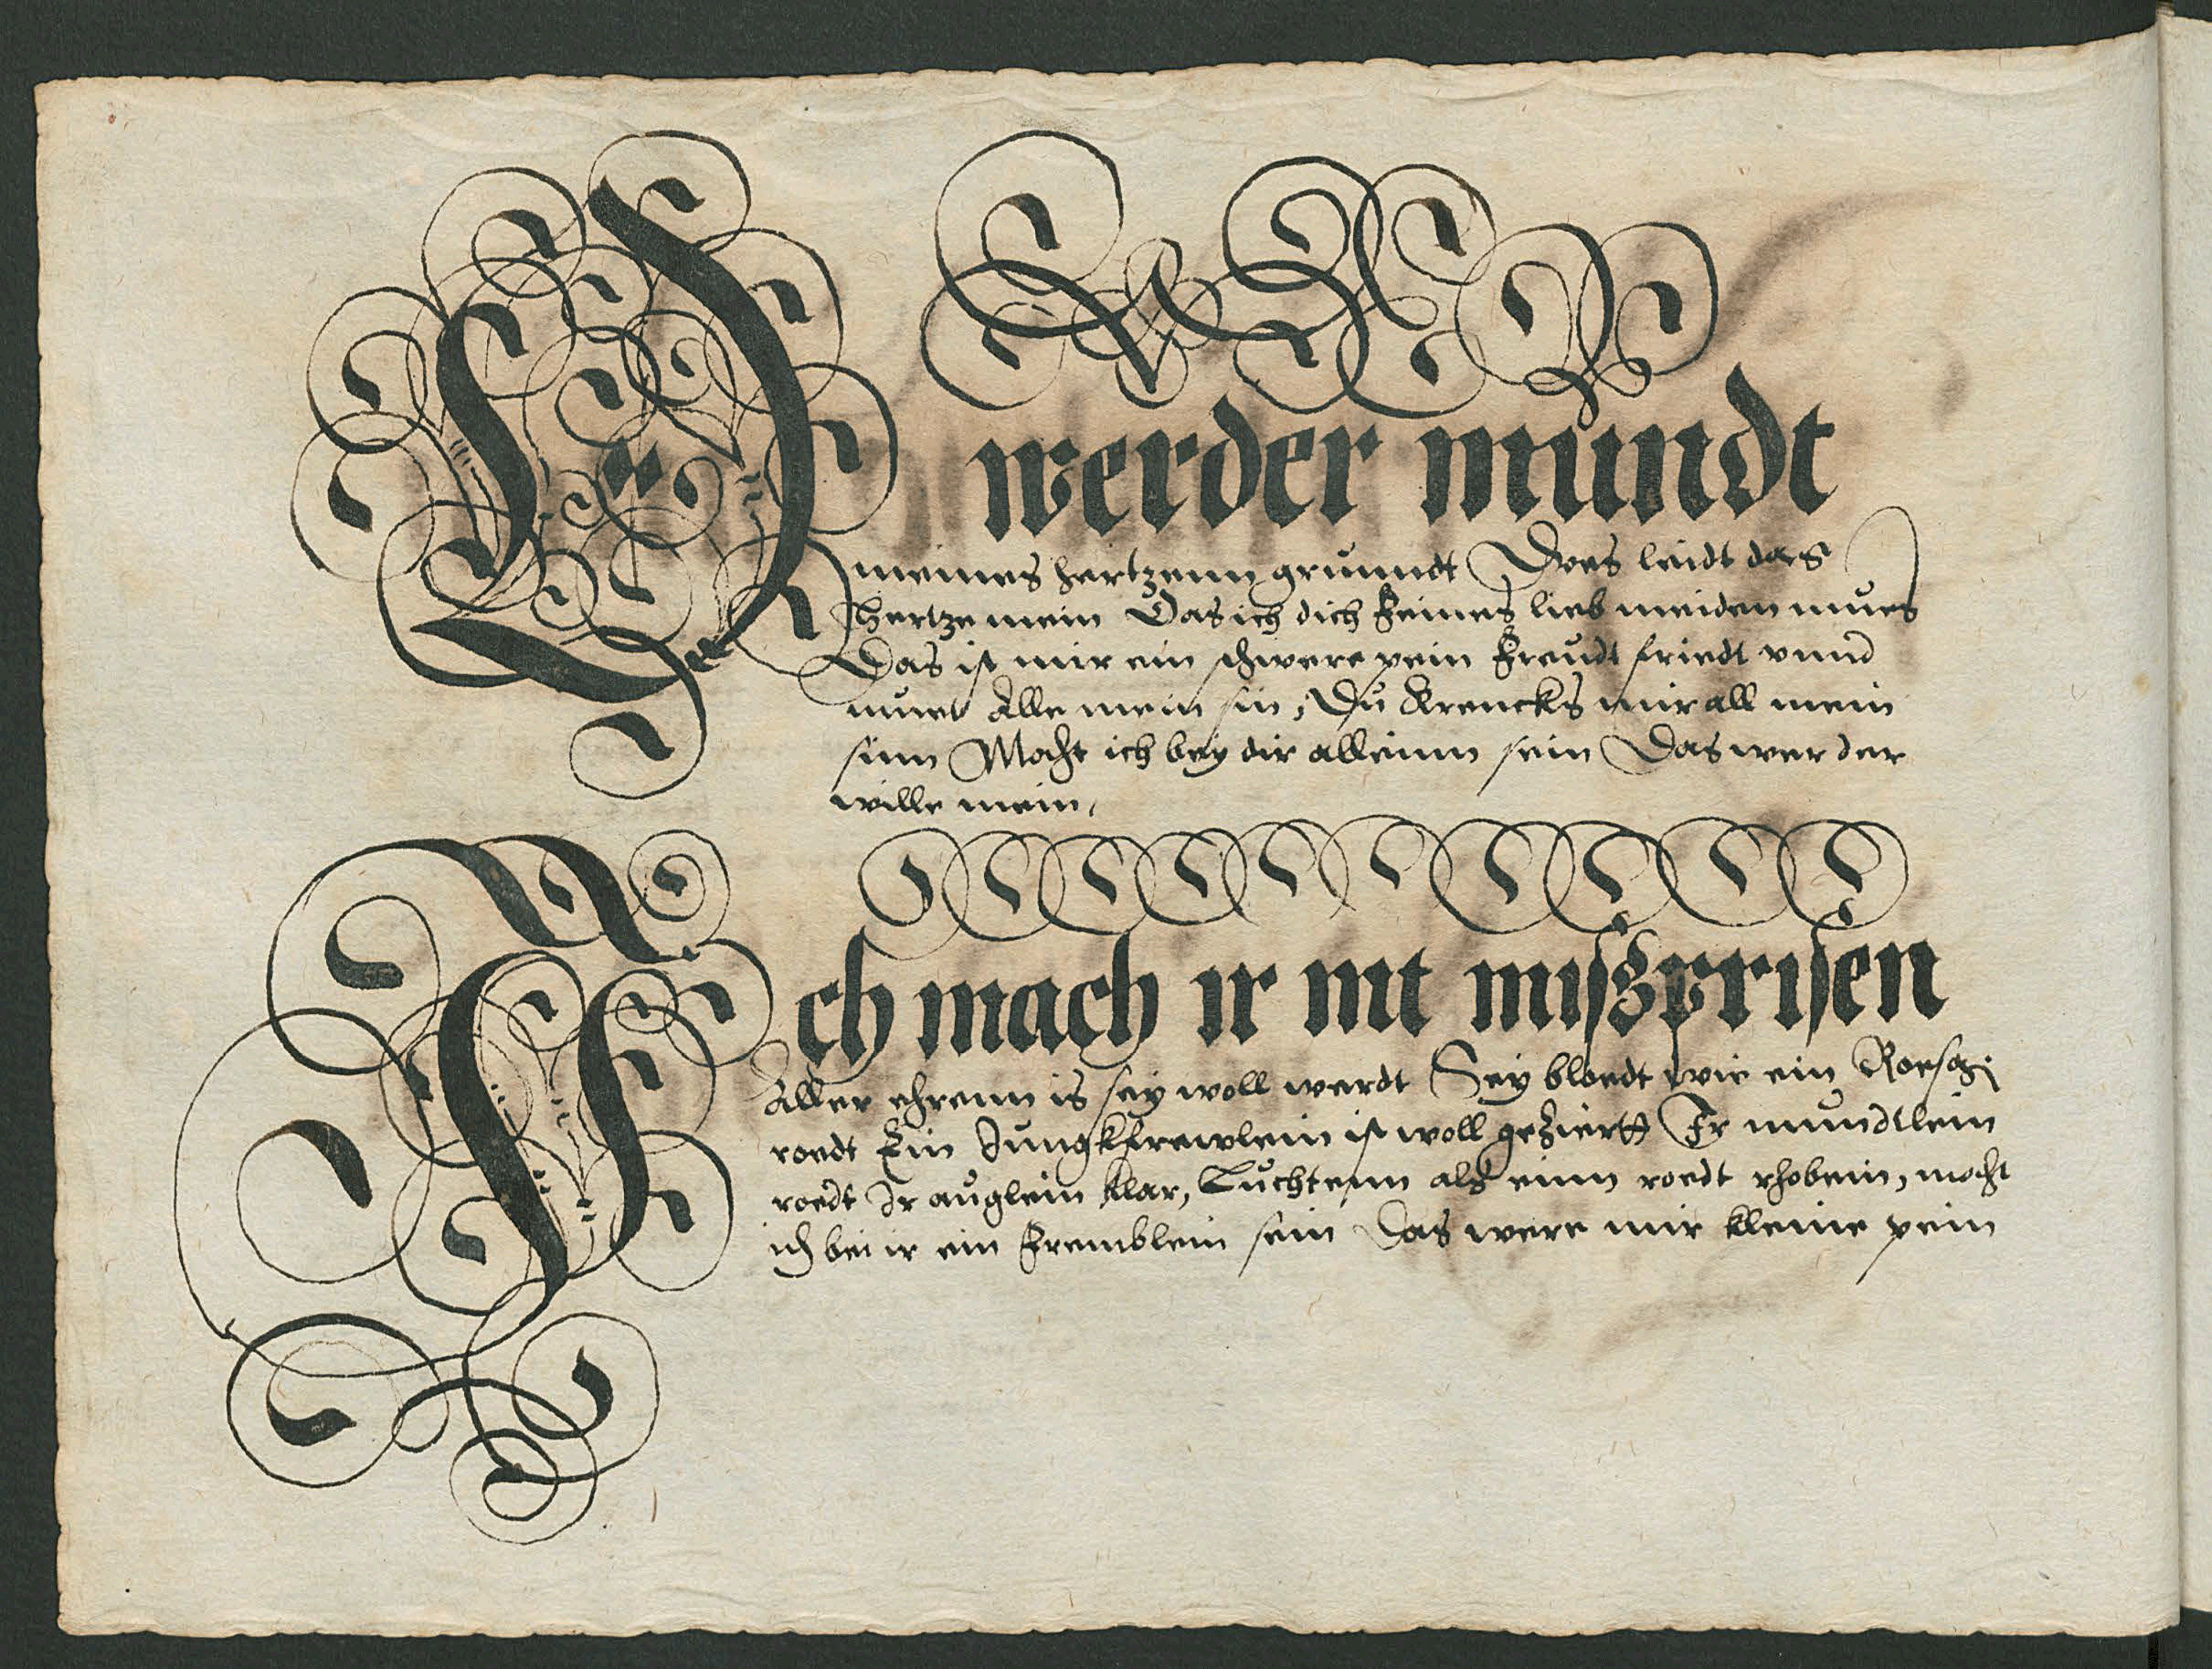 O werder mundt
meines hertzenn grunndt Dves leidt das
hertze mein Das ich dich feines lieb meiden mues
Das ist mir ein schwere pein Freudt friedt vnnd
muet Alle mein sin, Du Krencks mir all mein
sinn Mocht ich bey dir alleinn sein Das wer der
wille mein,
Ich mach ir nit miszprisen
Aller ehrenn is sey woll werdt Sey bloedt wie ein
roedt Ein Jungkfrewlein ist woll geziertt Ir mundtlein
roedt Ir auglein klar, Luchtenn als einn roedt rhobein, mocht
ich bei ir ein Fremblein sein Das were mir kleine pein